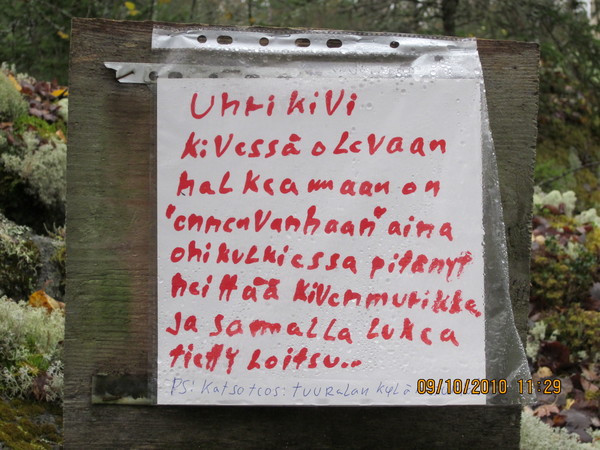 Uhrikivi
kivessä olevaan
halkeamaan on
"ennenvanhaan" aina
ohikulkiessa pitänyt
heittää kivenmurikka
ja samalla lukea
tietty loitsu..
PS: Katso teos: tuuralan kylä
09/10/2010 11:29